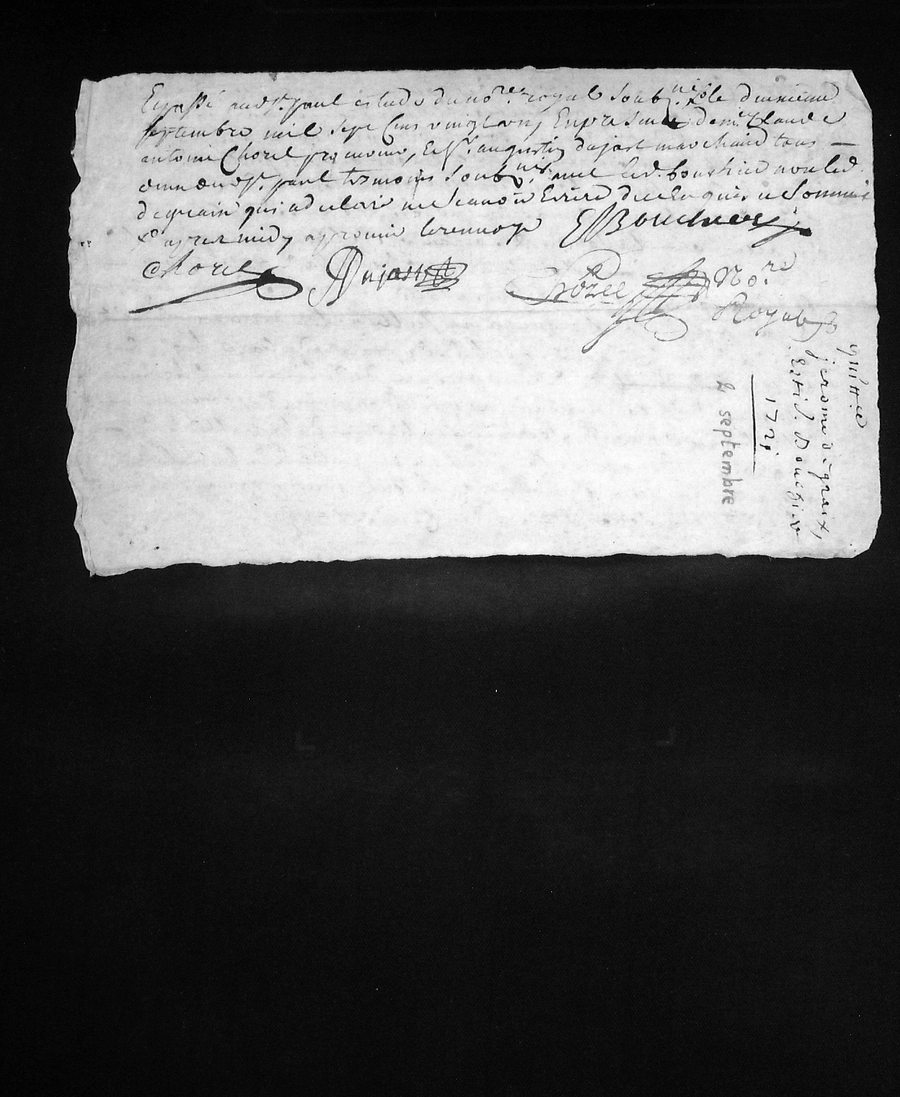 Et passé aud. St. paul estude du nore. royal soubzné le deuxieme
septembre mil sept Cens vingt un, En presence de mre. Claude
antoine Chorel prmoine, Et sr. augustin dujast marchand tous
dud. St. paul tesmoins soubznés avec led. bouchier non led.
degrain qui a declaré ne scavoir Escrire de ce Enquis et Sommé
apres midy approuvé le renvoye EBouchier
Chorel ADujast Nore.
Royal
quittce
jerome degraix,
Et il. Bouchier
1721
2 septembre